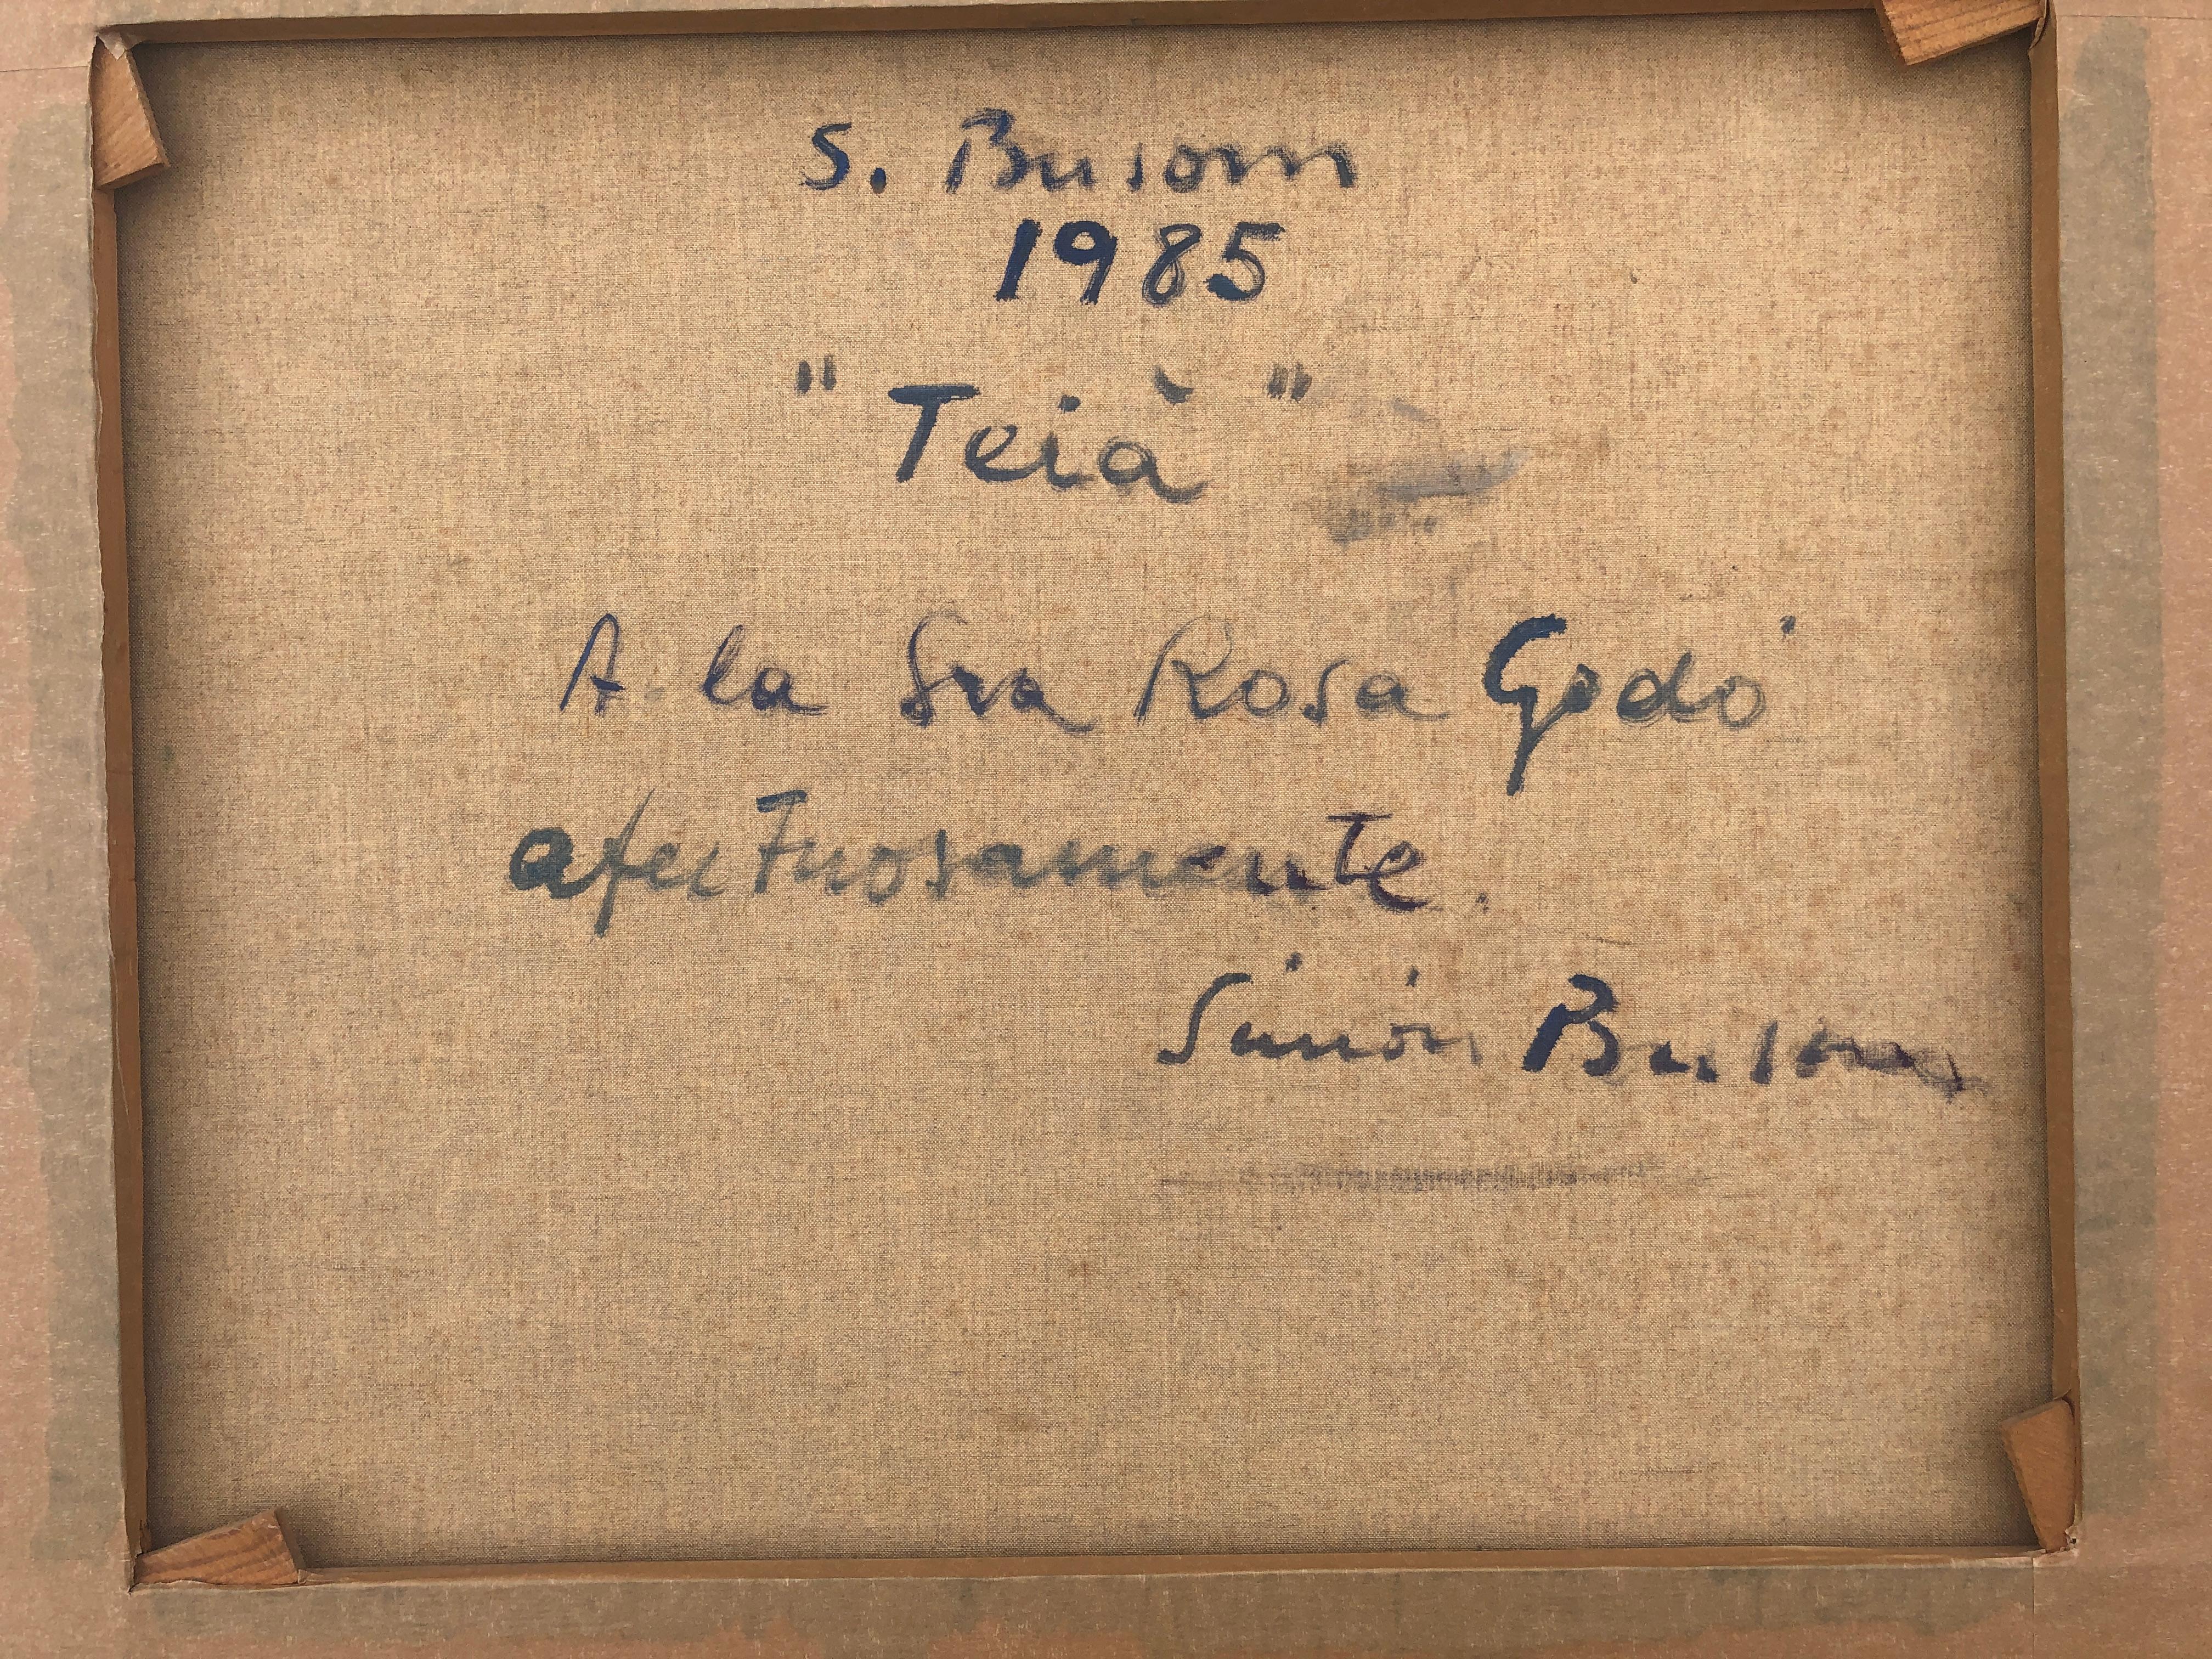 S. Busom
1985
"Teià"
A la Sra Rosa Godó
afectuosamente.
Simón Busom